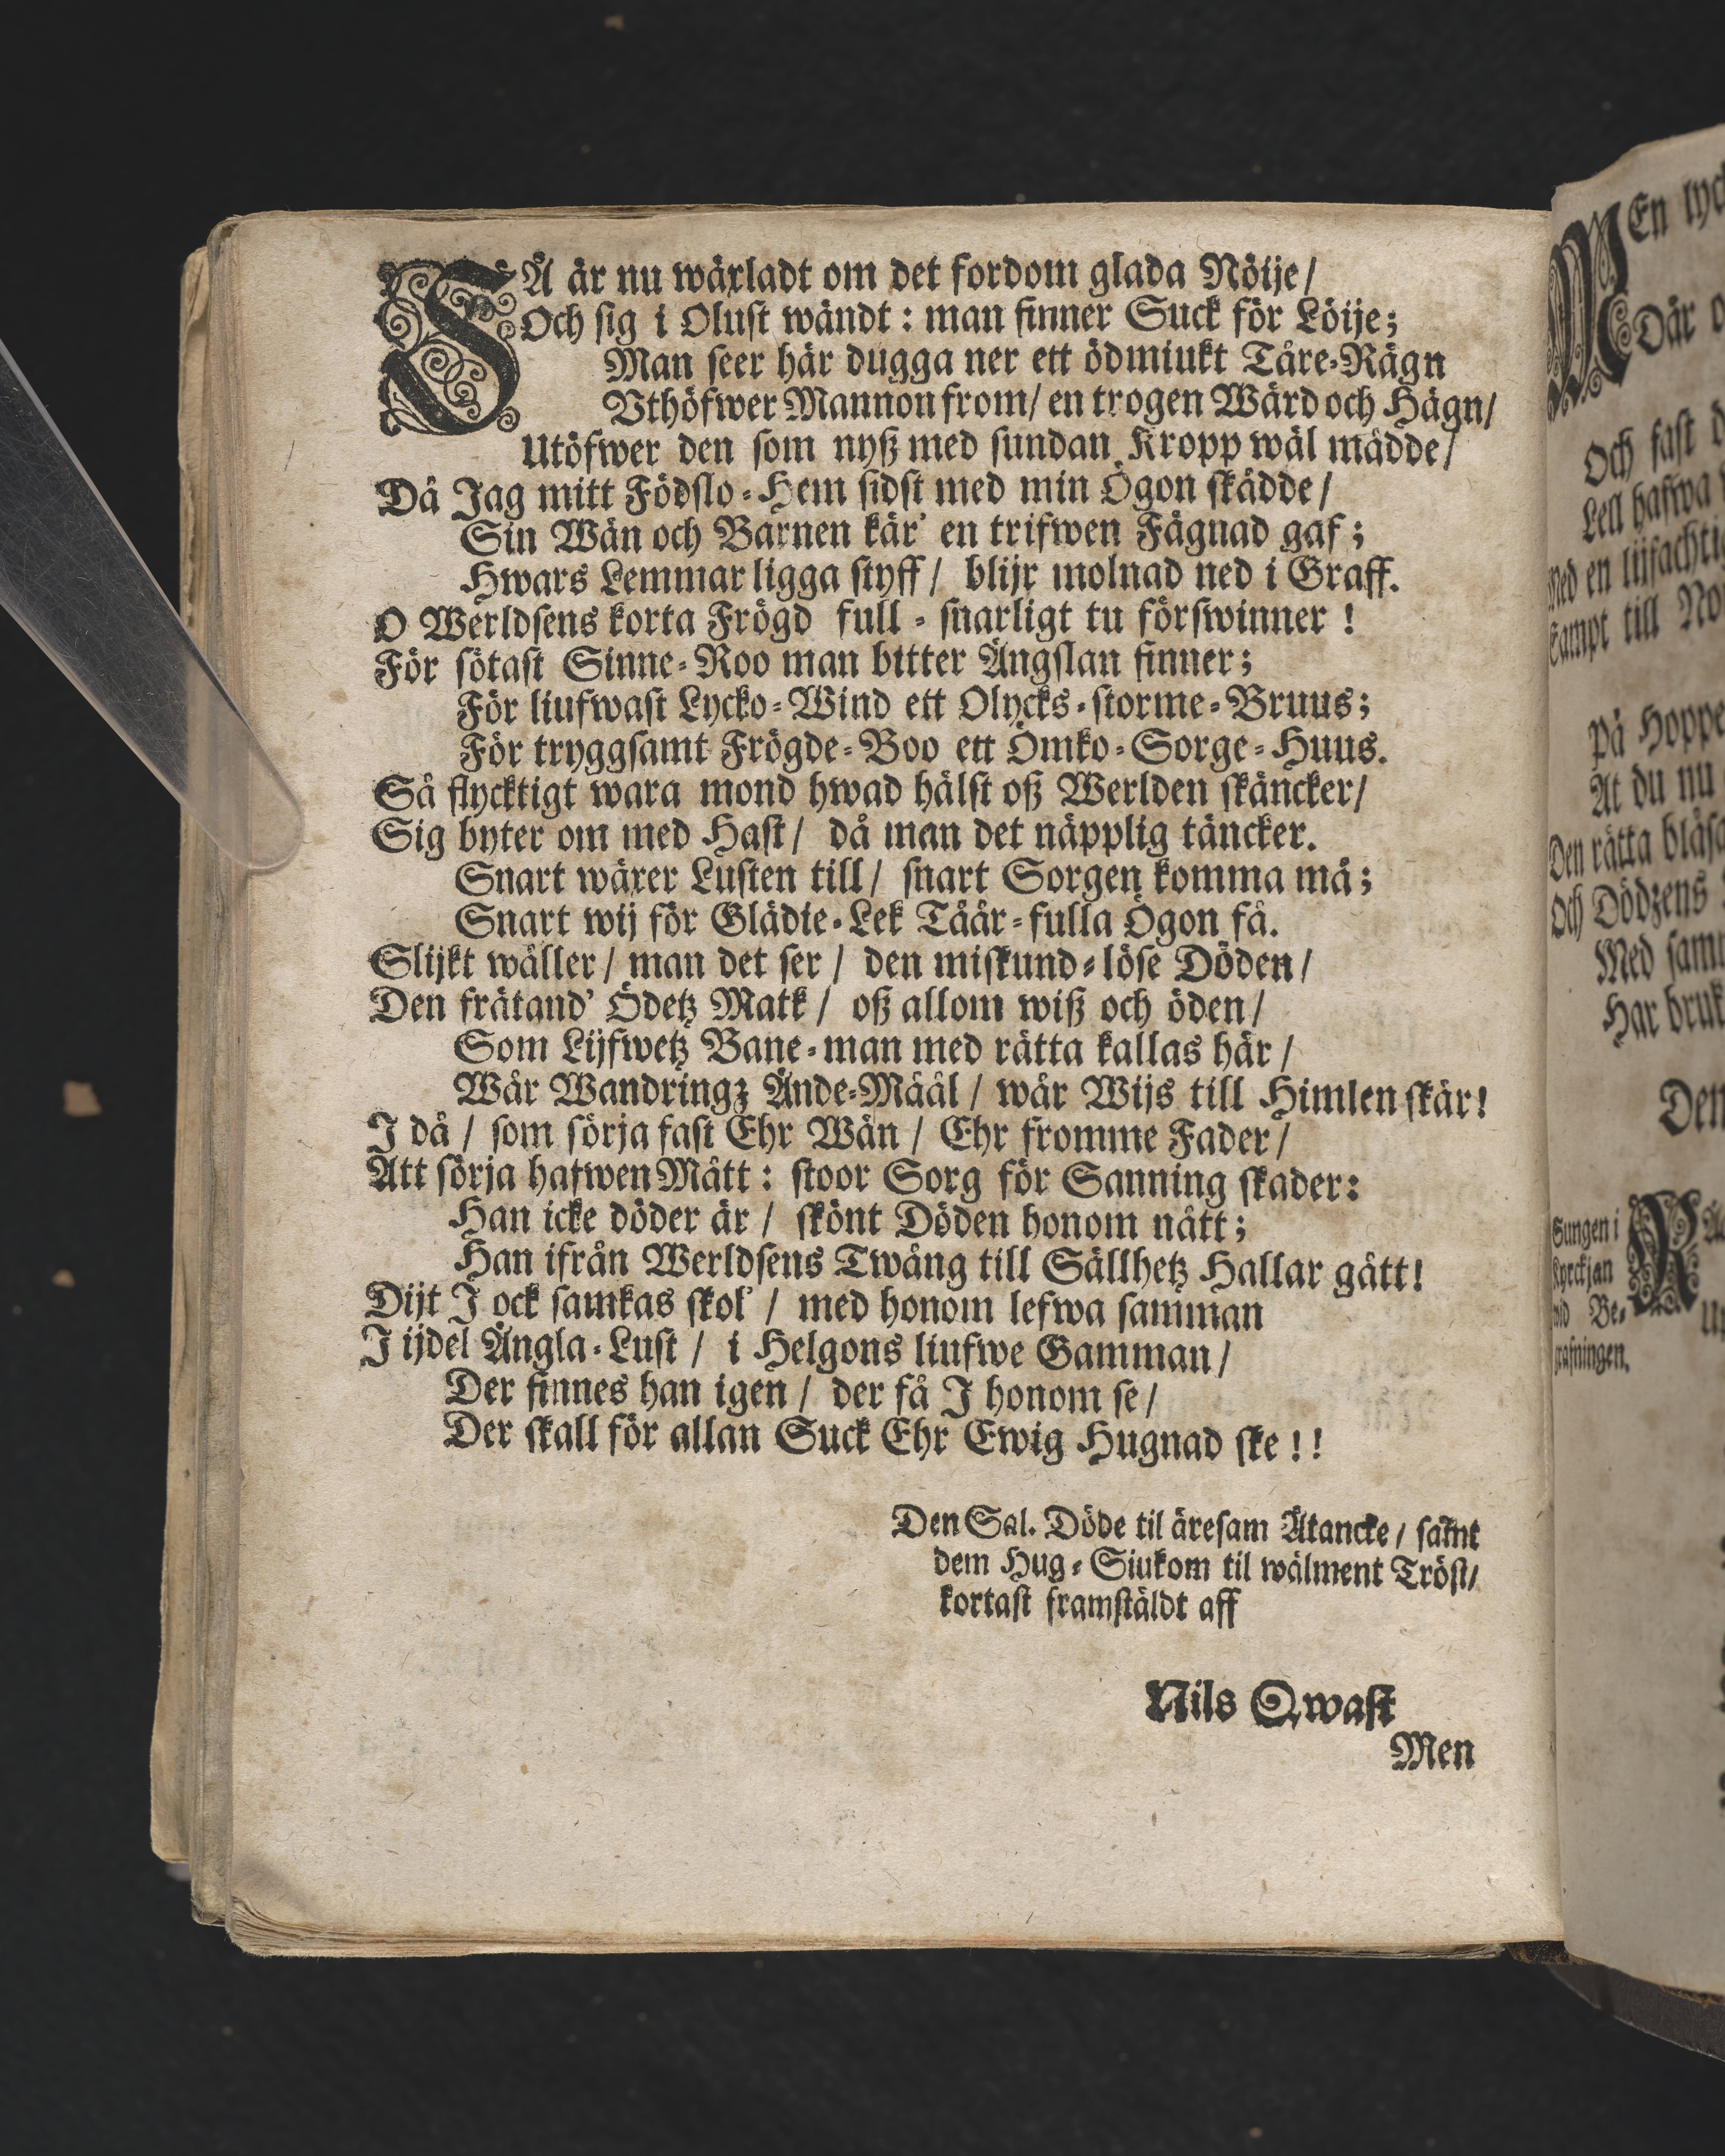 SÅ är nu wäxladt om det fordom glada Nöije/
Och sig i Olust wändt: man finner Suck för Löije;
Man seer här dugga ner ett ödmiukt Tåre-Rägn
Vthöfwer Mannon from/ en trogen Wärd och Hägn/
Utöfwer den som nyß med sundan Kropp wäl mådde/
Då Jag mitt Födslo-Hem sidst med min Ögon skådde/
Sin Wän och Barnen kär' en trifwen Fägnad gaf;
Hwars Lemmar ligga styff/ blijr molnad ned i Graff.
O Werldsens korta Frögd full-snarligt tu förswinner!
För sötast Sinne-Roo man bitter Ängslan finner;
För liufwast Lycko-Wind ett Olycks-storme-Bruus;
För tryggsamt Frögde-Boo ett Ömko-Sorge-Huus.
Så flycktigt wara mond hwad hälst oß Werlden skäncker/
Sig byter om med Hast/ då man det näpplig täncker.
Snart wäxer Lusten till/ snart Sorgen komma må;
Snart wij för Glädie-Lek Tåår-fulla Ögon få.
Slijkt wåller/ man det ser/ den miskund-löse Döden/
Den frätand' Ödetz Matk/ oß allom wiß och öden/
Som Lijfwetz Bane-man med rätta kallas här/
Wår Wandringz Ände-Måål/ wår Wijs till Himlen skär!
I då/ som sörja fast Ehr Wän/ Ehr fromme Fader/
Att sörja hafwen Mått: stoor Sorg för Sanning skader:
Han icke döder är/ skönt Döden honom nått;
Han ifrån Werldsens Twång till Sällhetz Hallar gått!
Dijt I ock samkas skol'/ med honom lefwa samman
I ijdel Ängla-Lust/ i Helgons liufwe Gamman/
Der finnes han igen/ der få I honom se/
Der skall för allan Suck Ehr Ewig Hugnad ske!!
Den Sal. Döde til äresam Åtancke/ samt
dem Hug-Siukom til wälment Tröst/
kortast framstäldt aff
Nils Qwast
Men
MEn
Där
Och fast
Lell hafwa
Med en
Sampt till
På Hoppe
At du nu
Den rätta
Och Dödzens
Med
Har
Den
Sungen i
Kyrckjan
wid Be-
grafningen.